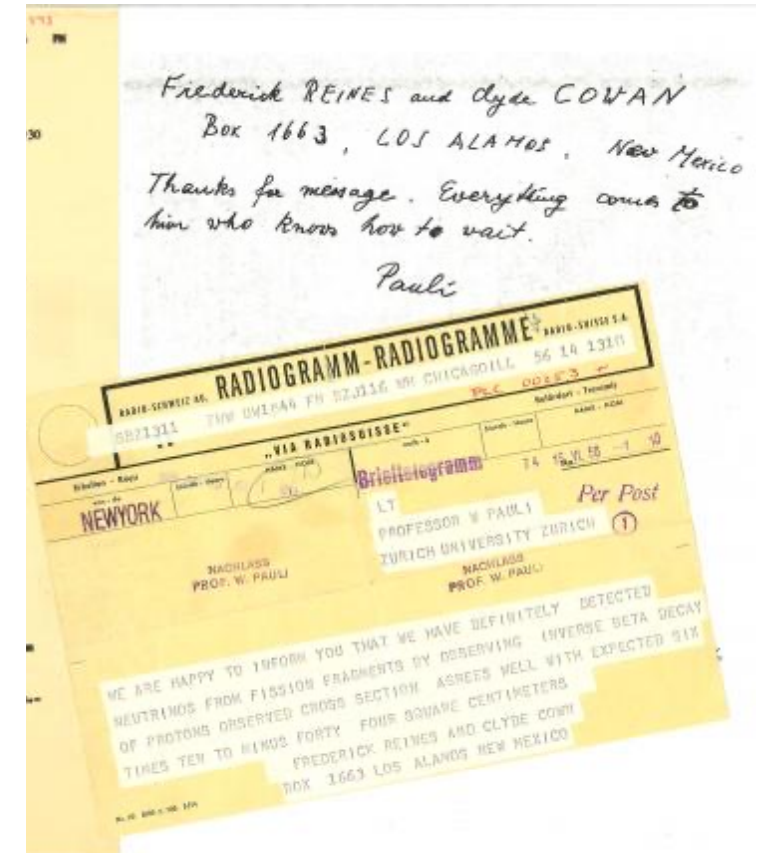 PM
30
Frederick REINES and Clyde COWAN
Box 1663, LOS ALAMOS, New Mexico
Thanks for message. Everything comes to
him who knows how to wait.
Pauli
RADIO-SCHWEIZ AG. RADIOGRAMM-RADIOGRAMME RADIO-SUISSE S.A.
SBZ1311 CHICAGOILL 56 14 1310
PLC 00253
„VIA RADIOSUISSE"
Erhalten - Reçu
Befördert - Transmis
NEWYORK
Brieftelegramm
74 15.VI.56
Per Post
LT
PROFESSOR W PAULI
ZURICH UNIVERSITY ZURICH
1
NACHLASS
PROF. W. PAULI
NACHLASS
PROF. W. PAULI
WE ARE HAPPY TO INFORM YOU THAT WE HAVE DEFINITELY DETECTED
NEUTRINOS FROM FISSION FRAGMENTS BY OBSERVING INVERSE BETA DECAY
OF PROTONS OBSERVED CROSS SECTION AGREES WELL WITH EXPECTED SIX
TIMES TEN TO MINUS FORTY FOUR SQUARE CENTIMETERS
FREDERICK REINES AND CLYDE COWN
BOX 1663 LOS ALAMOS NEW MEXICO